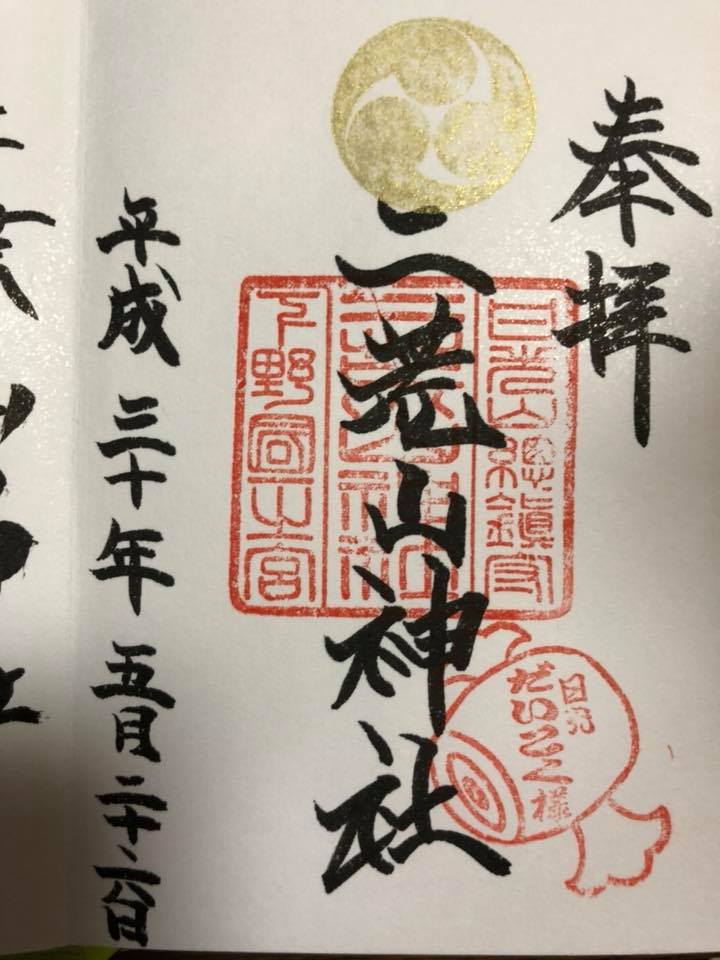 奉拝
二荒山神社
日光山総鎮守
下野国一宮
日光
だいこく様
平成三十年五月二十二日